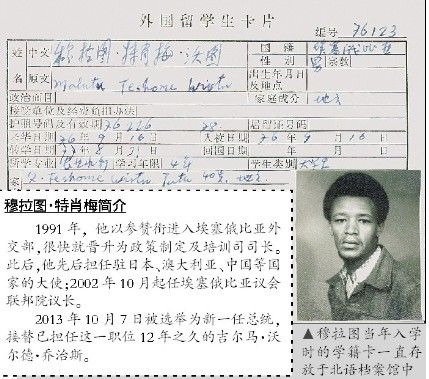 外国留学生卡片
编号 76123
姓 中文 穆拉图·特肖梅·沃图 国籍 埃塞俄比亚
性别 男 宗教
名 原文 Mulatu Teshome Wirtu 出生年月日及地点
政治面目 家庭成分 地方
接受单位及经费负担办法
护照号码及有效期 居留证号码
来华日期 76年9月16日 入校日期 76年9月16日
离学日期 8月31日 回国日期 年 月 日
所学专业 学习年限 4年 学生类别 大学生
家 父 Teshome Wirtu
穆拉图·特肖梅简介
1991年,他以参赞衔进入埃塞俄比亚外
交部,很快就晋升为政策制定及培训司司长。
此后,他先后担任驻日本、澳大利亚、中国等国
家的大使;2002年10月起任埃塞俄比亚议会
联邦院议长。
2013年10月7日被选举为新一任总统,
接替已担任这一职位12年之久的吉尔马·沃
尔德·乔治斯。
▲穆拉图当年入学
时的学籍卡一直存
放于北语档案馆中